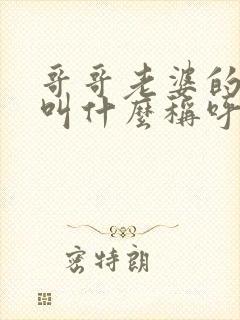 哥哥老婆的
叫什麼稱呼
密特朗